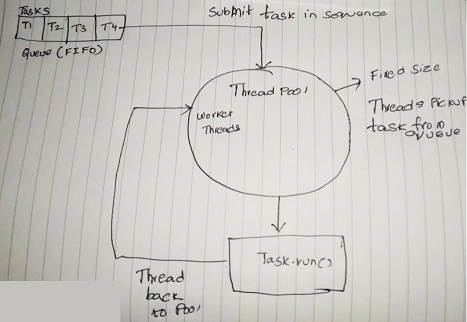 Tasks
T1 T2 T3 T4
Queue (FIFO)
Submit task in sequence
Thread Pool
Worker
Threads
Fixed Size
Threads Pickup
task from
queue
Task.run()
Thread
back
to Pool